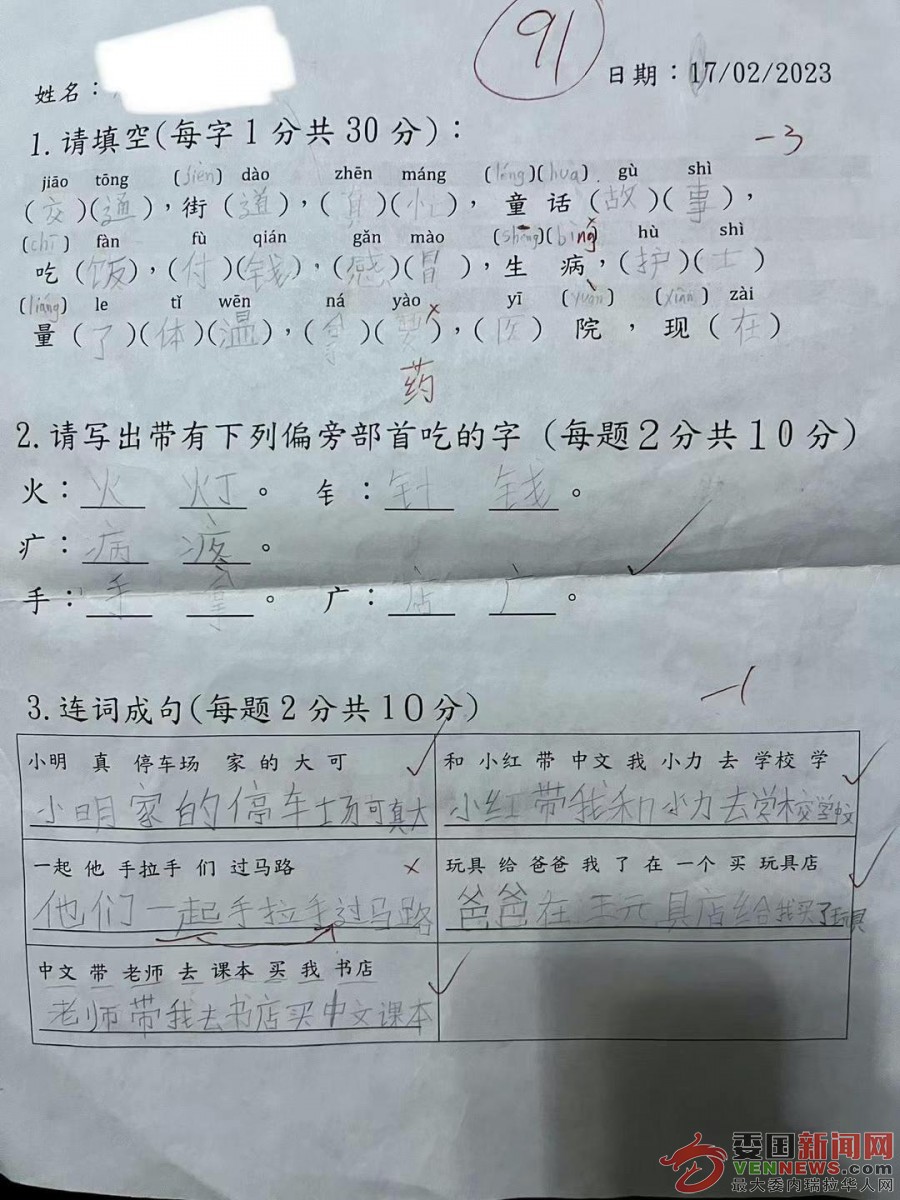 91
姓名：
日期：17/02/2023
1.请填空(每字1分共30分)：
-3
jiāo tōng (jiēn) dào zhēn máng (tóng)(huà) gù shì
(交)(通)，街(道)，(真)(忙)，童话(故)(事)，
(chī) fàn fù qián gǎn mào (shēng)(bìng) hù shì
吃(饭)，(付)(钱)，(感)(冒)，生病，(护)(士)
(liáng) le tǐ wēn ná yào yī (yuàn) (xiàn) zài
量(了)(体)(温)，(拿)( )，(医)院，现(在)
药
2.请写出带有下列偏旁部首吃的字(每题2分共10分)
火：火 灯。 钅：针 钱。
疒：病 疼。
手：手 拿。 广：店 广。
3.连词成句(每题2分共10分)
-1
小明 真 停车场 家 的 大 可
小明家的停车场可真大
和 小红 带 中文 我 小力 去 学校 学
小红带我和小力去学校学中文
一起 他 手拉手 们 过马路
他们一起手拉手过马路
玩具 给 爸爸 我 了 在 一个 买 玩具店
爸爸在玩具店给我买了玩具
中文 带 老师 去 课本 买 我 书店
老师带我去书店买中文课本
委国新闻网
VENNEWS.COM
最大委内瑞拉华人网